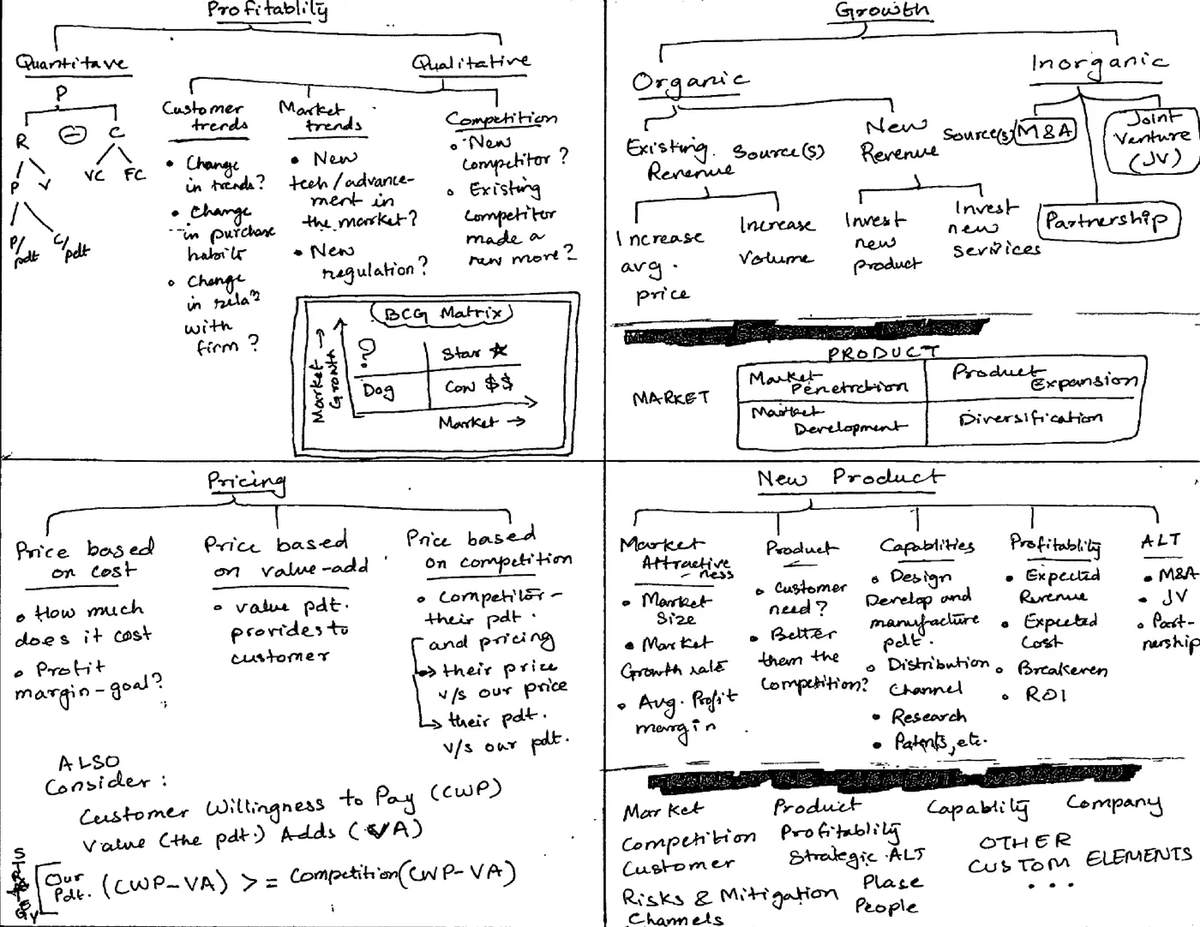 Profitablity
Quantitave
Qualitative
P
R
C
P
V
VC
FC
P/pdt
C/pdt
Customer
trends
• Change
in trends?
• Change
in purchase
habits
• Change
in
with
firm?
Market
trends
• New
tech/advance-
ment in
the market?
• New
regulation?
Competition
• New
competitor?
• Existing
competitor
made a
new move?
BCG Matrix
Market →
Growth
?
Star
Dog
Cow $$
Market →
Growth
Organic
Inorganic
Existing
Revenue
Source(s)
New
Revenue
Source(s)
M&A
Joint
Venture
(JV)
Partnership
Increase
avg.
price
Increase
Volume
Invest
new
product
Invest
new
servives
PRODUCT
MARKET
Market
Penetration
Product
Expansion
Market
Development
Diversification
Pricing
Price based
on cost
• How much
does it cost
• Profit
margin-goal?
Price based
on value-add
• value pdt.
provides to
customer
Price based
on competition
• Competitor-
their pdt.
and pricing
→ their price
v/s our price
→ their pdt.
v/s our pdt.
ALSO
Consider:
Customer Willingness to Pay (CWP)
Value (the pdt.) Adds (VA)
Our
Pdt. (CWP-VA) >= Competition (CWP-VA)
New Product
Market
Attractive
-ness
• Market
Size
• Market
Growth rate
• Avg. Profit
margin
Product
• Customer
need?
• Better
them the
competition?
Capablities
• Design
Develop and
manufacture
pdt.
• Distribution
Channel
• Research
• Patents, etc.
Profitablity
• Expected
Revenue
• Expected
Cost
• Breakeven
• ROI
ALT
• M&A
• JV
• Part-
nership
Market
Product
Capablity
Company
Competition
Profitablity
OTHER
Customer
Strategic ALT
CUSTOM ELEMENTS
Risks & Mitigation
Place
...
Channels
People